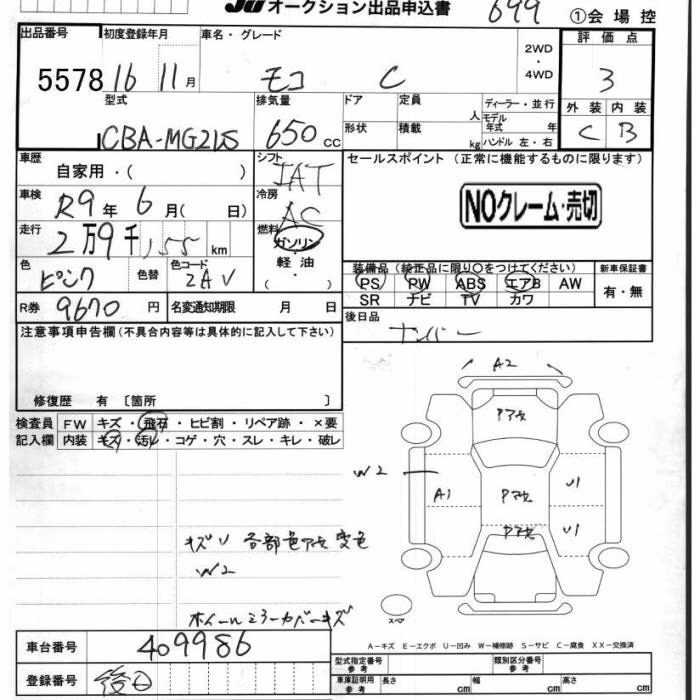 JU オークション出品申込書 699 ①会場控
出品番号 初度登録年月 車名・グレード 評価点
5578 16 11月 モコ C 2WD・4WD 3
型式 排気量 ドア 定員 人 ディーラー・並行 外装 内装
CBA-MG21S 650cc 形状 積載 kg モデル年式 年 ハンドル 左・右 C B
車歴 自家用・( ) シフト IAT セールスポイント(正常に機能するものに限ります)
車検 R9年6月( 日) 冷房 AC NOクレーム・売切
走行 2万9千155km 燃料 ガソリン・軽油・( )
色 ピンク 色替 色コード ZAV 装備品(純正品に限り〇をつけてください) 新車保証書
PS PW ABS エアB AW 有・無
SR ナビ TV カワ
R券 9670円 名変通知期限 月 日 後日品
ナンバー
注意事項申告欄(不具合内容等は具体的に記入して下さい)
修復歴 有 〔箇所 〕
検査員 FW キズ・飛石・ヒビ割・リペア跡・×要
記入欄 内装 キズ・汚レ・コゲ・穴・スレ・キレ・破レ
A2
Pアセ
W2
A1 Pアセ U1
Pアセ U1
キズU 各部色アセ変色
W2
ホイールミラーカバーキズ
スペア
車台番号 409986
A-キズ E-エクボ U-凹み W-補修跡 S-サビ C-腐食 XX-交換済
登録番号 後日
型式指定番号 参考 類別区分番号 参考
車庫証明用 参考 長さ cm 幅 cm 高さ cm